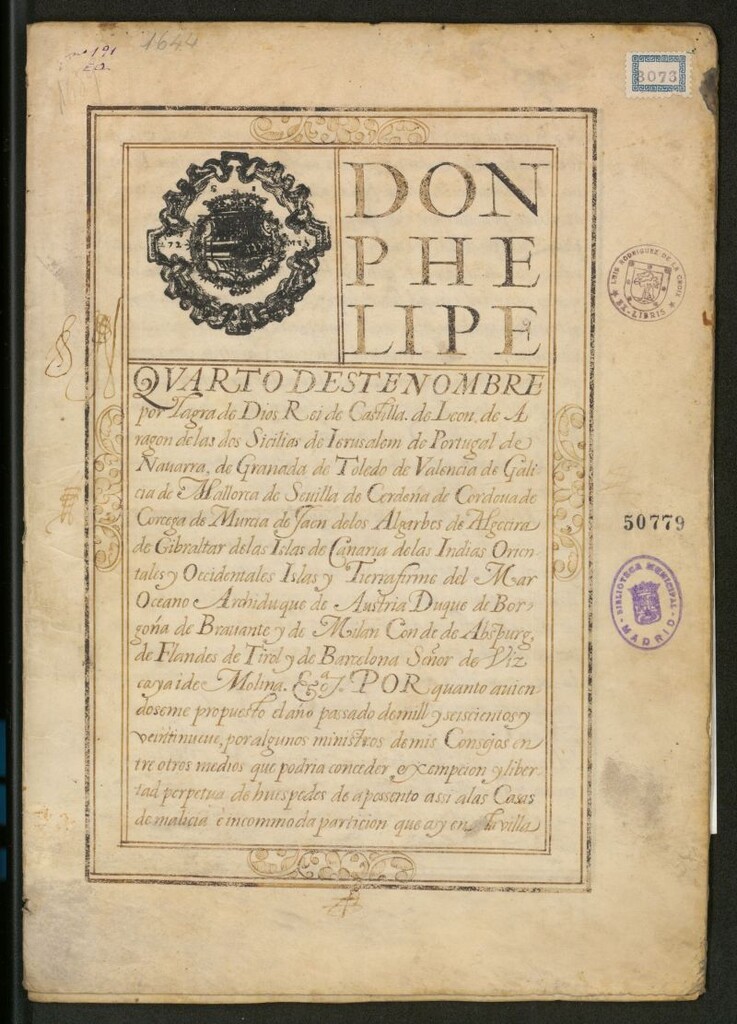 1644
3073
DON
PHE
LIPE
QVARTO DESTE NOMBRE
por la gra de Dios Rei de Castilla. de Leon, de A
ragon de las dos Sicilias de Ierusalem de Portugal de
Nauarra, de Granada de Toledo de Valencia de Gali
cia de Mallorca de Seuilla de Cerdeña de Cordoua de
Corcega de Murcia de Jaen delos Algarbes de Algecira
de Gibraltar delas Islas de Canaria delas Indias Orien
tales y Occidentales Islas y Tierrafirme del Mar
Oceano Archiduque de Austria Duque de Bor
goña de Brauante y de Milan Conde de Abspurg,
de Flandes de Tirol y de Barcelona Señor de Viz
caya i de Molina. &a. POR quanto auien
doseme propuesto el año passado de mill y seiscientos y
veintinueue, por algunos ministros de mis Consejos en
tre otros medios que podria conceder exempcion y liber
tad perpetua de huespedes de apossento assi alas Casas
de malicia e incommoda particion que ay en la villa
LUIS RODRIGUEZ DE LA CROIX
EX-LIBRIS
50779
BIBLIOTECA MUNICIPAL
MADRID